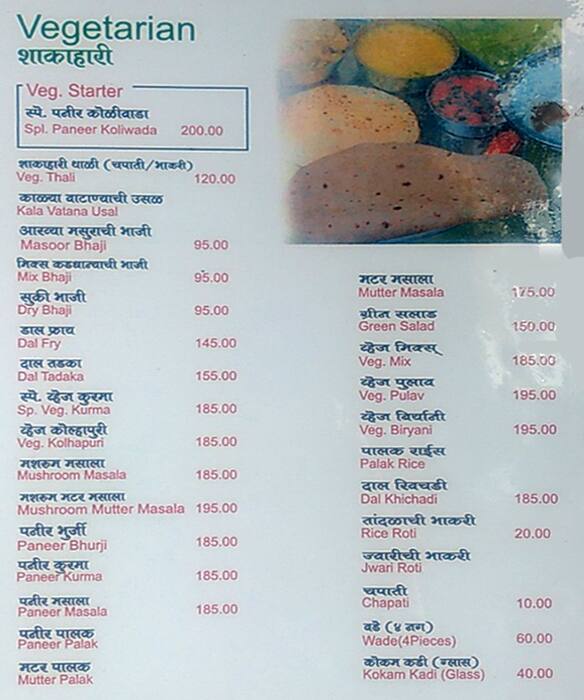 Vegetarian
शाकाहारी
Veg. Starter
स्पे. पनीर कोळीवाडा
Spl. Paneer Koliwada 200.00
शाकाहारी थाळी (चपाती/भाकरी)
Veg. Thali 120.00
काळ्या वाटाण्याची उसळ
Kala Vatana Usal
आख्या मसुराची भाजी
Masoor Bhaji 95.00
मिक्स कडधान्याची भाजी
Mix Bhaji 95.00
सुकी भाजी
Dry Bhaji 95.00
डाल फ्राय
Dal Fry 145.00
दाल तडका
Dal Tadaka 155.00
स्पे. व्हेज कुरमा
Sp. Veg. Kurma 185.00
व्हेज कोल्हापुरी
Veg. Kolhapuri 185.00
मशरुम मसाला
Mushroom Masala 185.00
मशरुम मटर मसाला
Mushroom Mutter Masala 195.00
पनीर भुर्जी
Paneer Bhurji 185.00
पनीर कुरमा
Paneer Kurma 185.00
पनीर मसाला
Paneer Masala 185.00
पनीर पालक
Paneer Palak
मटर पालक
Mutter Palak
मटर मसाला
Mutter Masala 175.00
ग्रीन सलाड
Green Salad 150.00
व्हेज मिक्स्
Veg. Mix 185.00
व्हेज पुलाव
Veg. Pulav 195.00
व्हेज बिर्यानी
Veg. Biryani 195.00
पालक राईस
Palak Rice
दाल खिचडी
Dal Khichadi 185.00
तांदळाची भाकरी
Rice Roti 20.00
ज्वारीची भाकरी
Jwari Roti
चपाती
Chapati 10.00
वडे (४ नग)
Wade(4Pieces) 60.00
कोकम कढी (ग्लास)
Kokam Kadi (Glass) 40.00